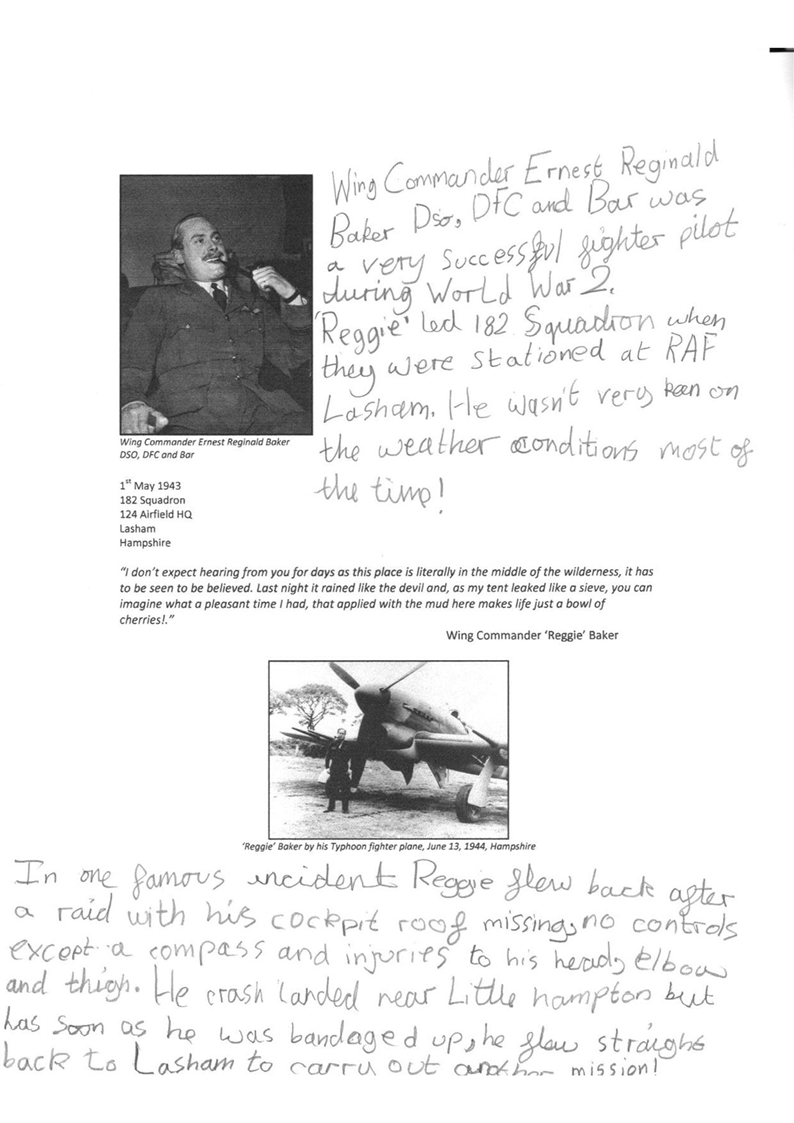 Wing Commander Ernest Reginald
Baker Dso, DFC and Bar was
a very successful fighter pilot
during World War 2.
'Reggie' led 182 Squadron when
they were stationed at RAF
Lasham. He wasn't very keen on
the weather conditions most of
the time!
Wing Commander Ernest Reginald Baker
DSO, DFC and Bar
1st May 1943
182 Squadron
124 Airfield HQ
Lasham
Hampshire
"I don't expect hearing from you for days as this place is literally in the middle of the wilderness, it has
to be seen to be believed. Last night it rained like the devil and, as my tent leaked like a sieve, you can
imagine what a pleasant time I had, that applied with the mud here makes life just a bowl of
cherries!."
Wing Commander 'Reggie' Baker
'Reggie' Baker by his Typhoon fighter plane, June 13, 1944, Hampshire
In one famous incident Reggie flew back after
a raid with his cockpit roof missing, no controls
except a compass and injuries to his head, elbow
and thigh. He crash landed near Little hampton but
has soon as he was bandaged up, he flew straight
back to Lasham to carry out another mission!